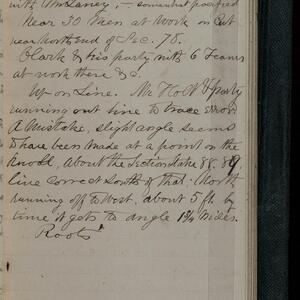 with McClaney, – somewhat pacified
Near 30 Men at Work on Cut
near North end of Sec. 78.
Clark & his party with 6 Teams
at work there &c.
Up on Line. Mr Holl & party
running out line to trace error
A Mistake, slight angle seems
to have been made at a point on the
Knoll, about the Section stake 88.89,
line correct South of that; North
running off to West, about 5 ft. by
time it gets to angle 1¾ Miles.
Roots